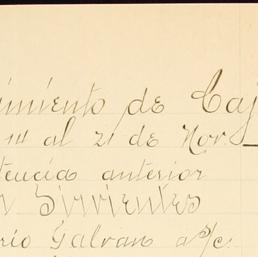 imiento de Caj
14 al 21 de Nov
tencia anterior
Sirvientes
rio Galvan a/c.